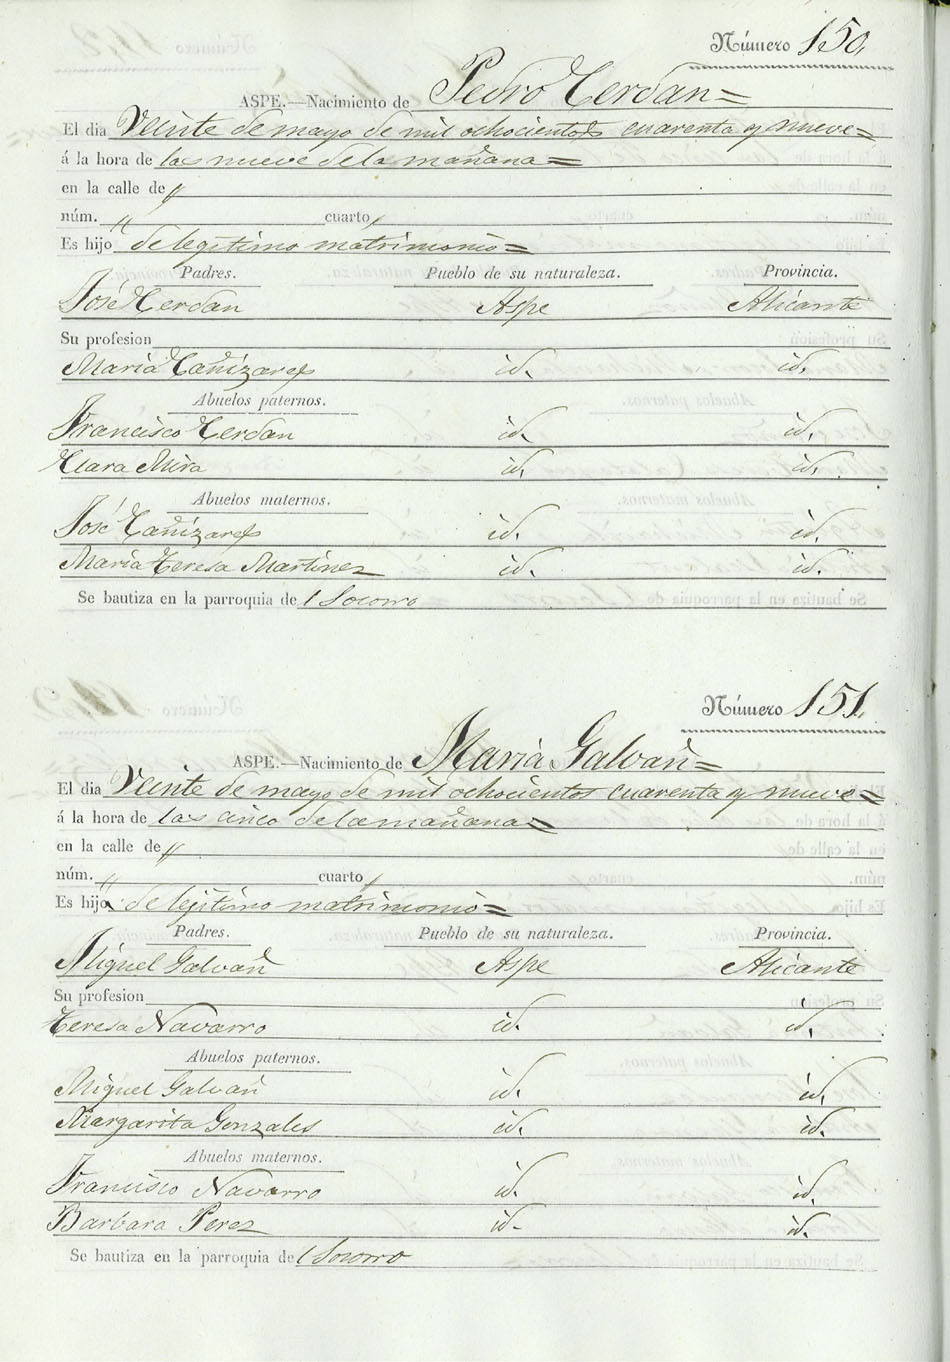 Número 150
ASPE.—Nacimiento de Pedro Cerdan=
El dia Veinte de mayo de mil ochocientos cuarenta y nueve=
á la hora de las nueve de la mañana=
en la calle de "
núm. " cuarto "
Es hijo de legitimo matrimonio=
Padres. Pueblo de su naturaleza. Provincia.
José Cerdan Aspe Alicante
Su profesion
Maria Cañizares id. id.
Abuelos paternos.
Francisco Cerdan id. id.
Clara Mira id. id.
Abuelos maternos.
José Cañizares id. id.
Maria Teresa Martinez id. id.
Se bautiza en la parroquia de l Socorro
Número 151.
ASPE.—Nacimiento de Maria Galvañ=
El dia Veinte de mayo de mil ochocientos cuarenta y nueve=
á la hora de las cinco de la mañana=
en la calle de "
núm. " cuarto "
Es hija de lejitimo matrimonio=
Padres. Pueblo de su naturaleza. Provincia.
Miguel Galvañ Aspe Alicante
Su profesion
Teresa Navarro id. id.
Abuelos paternos.
Miguel Galvañ id. id.
Margarita Gonzales id. id.
Abuelos maternos.
Francisco Navarro id. id.
Barbara Perez id. id.
Se bautiza en la parroquia de l Socorro